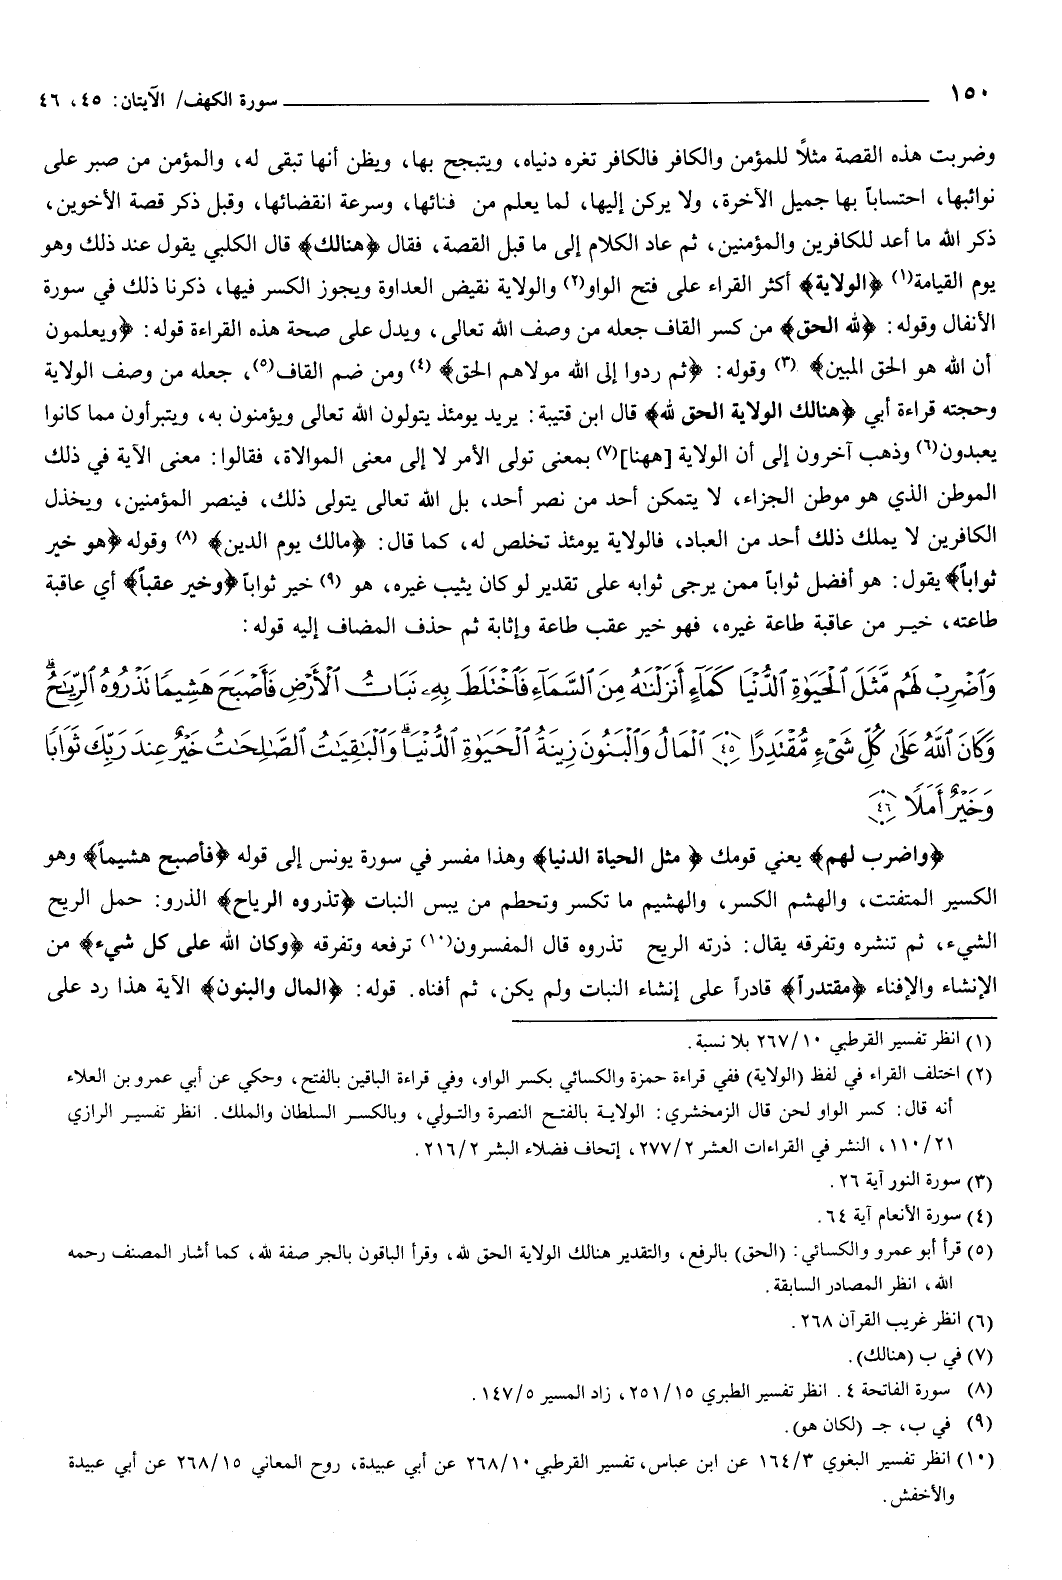 ١٥٠ سورة الكهف/ الآيتان: ٤٥، ٤٦
وضربت هذه القصة مثلاً للمؤمن والكافر فالكافر تغره دنياه، ويتبجح بها، ويظن أنها تبقى له، والمؤمن من صبر على
نوائبها، احتساباً بها جميل الآخرة، ولا يركن إليها، لما يعلم من فنائها، وسرعة انقضائها، وقبل ذكر قصة الأخوين،
ذكر الله ما أعد للكافرين والمؤمنين، ثم عاد الكلام إلى ما قبل القصة، فقال ﴿هنالك﴾ قال الكلبي يقول عند ذلك وهو
يوم القيامة(١) ﴿الولاية﴾ أكثر القراء على فتح الواو(٢) والولاية نقيض العداوة ويجوز الكسر فيها، ذكرنا ذلك في سورة
الأنفال وقوله: ﴿لله الحق﴾ من كسر القاف جعله من وصف الله تعالى، ويدل على صحة هذه القراءة قوله: ﴿ويعلمون
أن الله هو الحق المبين﴾ (٣) وقوله: ﴿ثم ردوا إلى الله مولاهم الحق﴾ (٤) ومن ضم القاف(٥)، جعله من وصف الولاية
وحجته قراءة أبي ﴿هنالك الولاية الحق لله﴾ قال ابن قتيبة: يريد يومئذ يتولون الله تعالى ويؤمنون به، ويتبرأون مما كانوا
يعبدون(٦) وذهب آخرون إلى أن الولاية [ههنا](٧) بمعنى تولى الأمر لا إلى معنى الموالاة، فقالوا: معنى الآية في ذلك
الموطن الذي هو موطن الجزاء، لا يتمكن أحد من نصر أحد، بل الله تعالى يتولى ذلك، فينصر المؤمنين، ويخذل
الكافرين لا يملك ذلك أحد من العباد، فالولاية يومئذ تخلص له، كما قال: ﴿مالك يوم الدين﴾ (٨) وقوله ﴿هو خير
ثواباً﴾ يقول: هو أفضل ثواباً ممن يرجى ثوابه على تقدير لو كان يثيب غيره، هو (٩) خير ثواباً ﴿وخير عقباً﴾ أي عاقبة
طاعته، خير من عاقبة طاعة غيره، فهو خير عقب طاعة وإثابة ثم حذف المضاف إليه قوله:
وَاضْرِبْ لَهُم مَّثَلَ الْحَيَوٰةِ الدُّنْيَا كَمَآءٍ أَنزَلْنَٰهُ مِنَ السَّمَآءِ فَاخْتَلَطَ بِهِۦ نَبَاتُ الْأَرْضِ فَأَصْبَحَ هَشِيمًا تَذْرُوهُ الرِّيَٰحُۗ
وَكَانَ اللَّهُ عَلَىٰ كُلِّ شَىْءٍ مُّقْتَدِرًا ﴿٤٥﴾ الْمَالُ وَالْبَنُونَ زِينَةُ الْحَيَوٰةِ الدُّنْيَاۖ وَالْبَٰقِيَٰتُ الصَّٰلِحَٰتُ خَيْرٌ عِندَ رَبِّكَ ثَوَابًا
وَخَيْرٌ أَمَلًا ﴿٤٦﴾
﴿واضرب لهم﴾ يعني قومك ﴿ مثل الحياة الدنيا﴾ وهذا مفسر في سورة يونس إلى قوله ﴿فأصبح هشيماً﴾ وهو
الكسير المتفتت، والهشم الكسر، والهشيم ما تكسر وتحطم من يبس النبات ﴿تذروه الرياح﴾ الذرو: حمل الريح
الشيء، ثم تنشره وتفرقه يقال: ذرته الريح تذروه قال المفسرون(١٠) ترفعه وتفرقه ﴿وكان الله على كل شيء﴾ من
الإنشاء والإفناء ﴿مقتدراً﴾ قادراً على إنشاء النبات ولم يكن، ثم أفناه. قوله: ﴿المال والبنون﴾ الآية هذا رد على
(١) انظر تفسير القرطبي ١٠/٢٦٧ بلا نسبة.
(٢) اختلف القراء في لفظ (الولاية) ففي قراءة حمزة والكسائي بكسر الواو، وفي قراءة الباقين بالفتح، وحكي عن أبي عمرو بن العلاء
أنه قال: كسر الواو لحن قال الزمخشري: الولاية بالفتح النصرة والتولي، وبالكسر السلطان والملك. انظر تفسير الرازي
٢١/١١٠، النشر في القراءات العشر ٢/٢٧٧، إتحاف فضلاء البشر ٢/٢١٦.
(٣) سورة النور آية ٢٦.
(٤) سورة الأنعام آية ٦٤.
(٥) قرأ أبو عمرو والكسائي: (الحق) بالرفع، والتقدير هنالك الولاية الحق لله، وقرأ الباقون بالجر صفة لله، كما أشار المصنف رحمه
الله، انظر المصادر السابقة.
(٦) انظر غريب القرآن ٢٦٨.
(٧) في ب (هنالك).
(٨) سورة الفاتحة ٤. انظر تفسير الطبري ١٥/٢٥١، زاد المسير ٥/١٤٧.
(٩) في ب، جـ (لكان هو).
(١٠) انظر تفسير البغوي ٣/١٦٤ عن ابن عباس، تفسير القرطبي ١٠/٢٦٨ عن أبي عبيدة، روح المعاني ١٥/٢٦٨ عن أبي عبيدة
والأخفش.